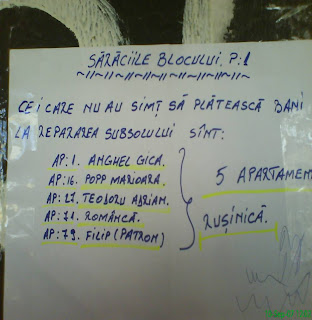 SĂRĂCIILE BLOCULUI, P:1
CEI CARE NU AU SIMȚ SĂ PLĂTEASCĂ BANI
LA REPARAREA SUBSOLULUI SÎNT:
AP:1. ANGHEL GICA.
AP:16. POPP MARIOARA.
AP:27. TEODORU ADRIAN.
AP:71. ROMÂNCA.
AP:79. FILIP (PATRON)
5 APARTAMEN
RUȘINICĂ.